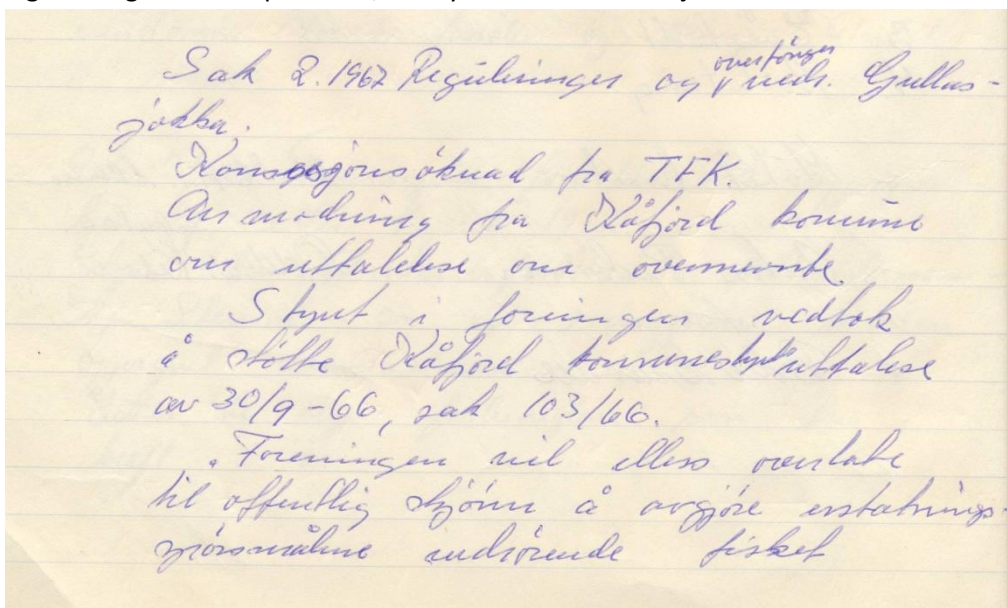 Sak 2.1967 Reguleringer og overföringer vedr. Gullas-
jokka.
Konsesjonsöknad fra TFK.
Anmodning fra Kåfjord komune
om uttalelse om overnevnte.
Styret i foreningen vedtok
å støtte Kåfjord kommunestyres uttalese
av 30/9-66, sak 103/66.
Foreningen vil elles overlate
til offentlig skjönn å avgjöre erstatnings-
spörsmålene vedrörende fisket